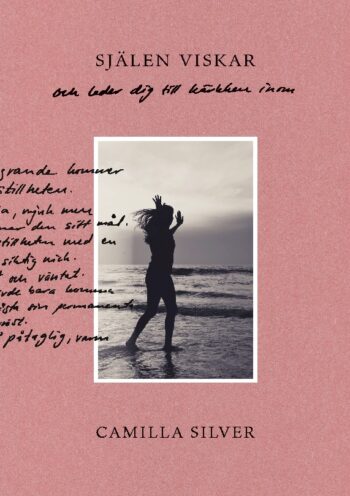 SJÄLEN VISKAR
och leder dig till kärleken inom
grande kommer
stillheten.
mjuk men
ner den sitt mål.
stillheten med en
siktig
och väntat.
bara komma
som permanent
påtaglig, varm
CAMILLA SILVER